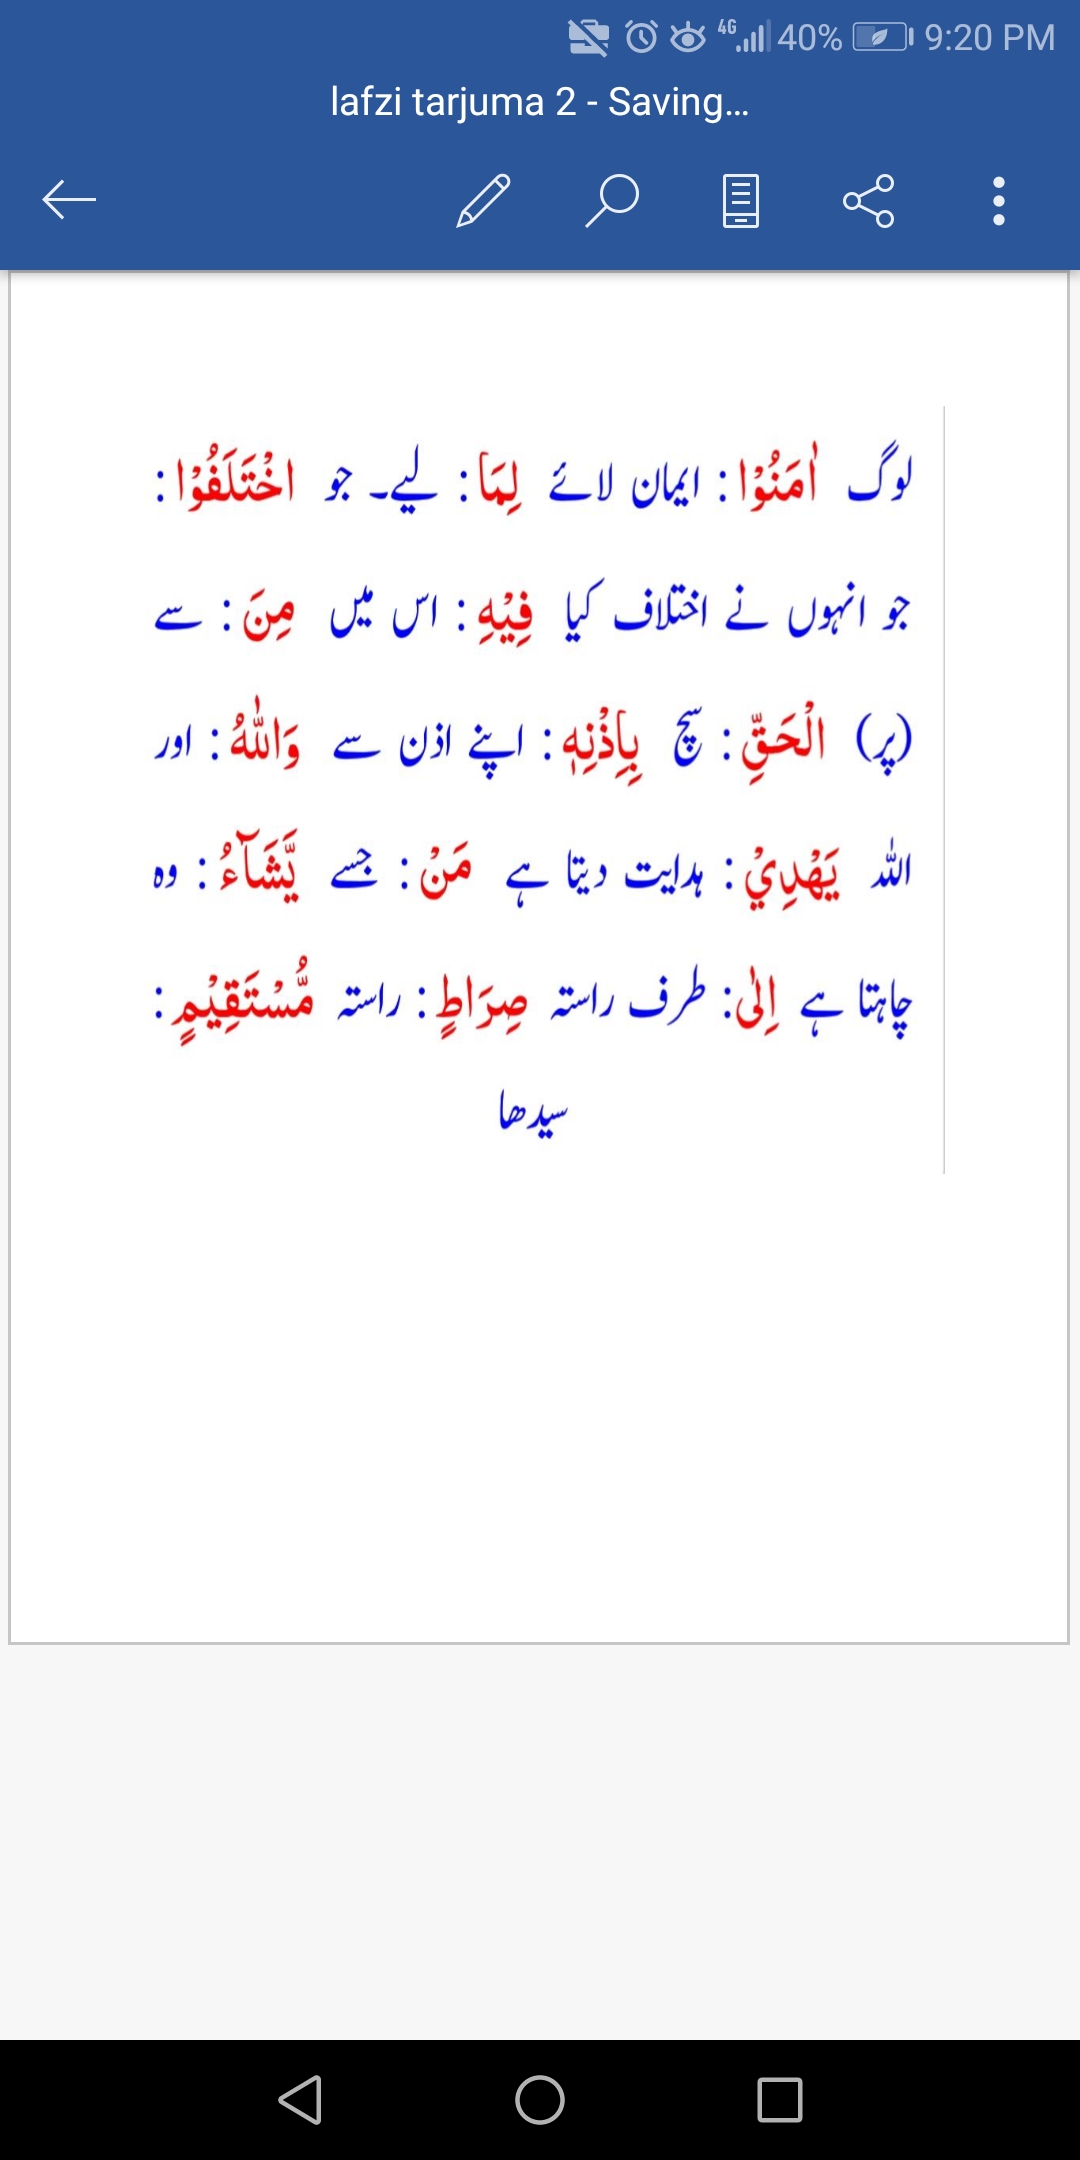 4G 40% 9:20 PM
lafzi tarjuma 2 - Saving...
لوگ اٰمَنُوْا : ایمان لائے لِمَا : لیے۔ جو اخْتَلَفُوْا :
جو انہوں نے اختلاف کیا فِيْهِ : اس میں مِنَ : سے
(پر) الْحَقِّ : سچ بِاِذْنِهٖ : اپنے اذن سے وَاللّٰهُ : اور
اللہ يَهْدِيْ : ہدایت دیتا ہے مَنْ : جسے يَّشَآءُ : وہ
چاہتا ہے اِلٰى : طرف راستہ صِرَاطٍ : راستہ مُّسْتَقِيْمٍ :
سیدھا